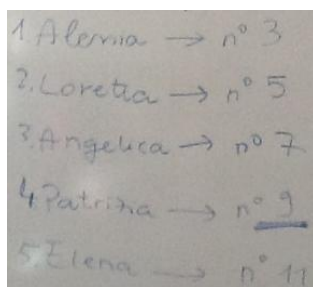 1. Alemia → n° 3
2. Loretta → n° 5
3. Angelica → n° 7
4. Patrizia → n° 9
5. Elena → n° 11